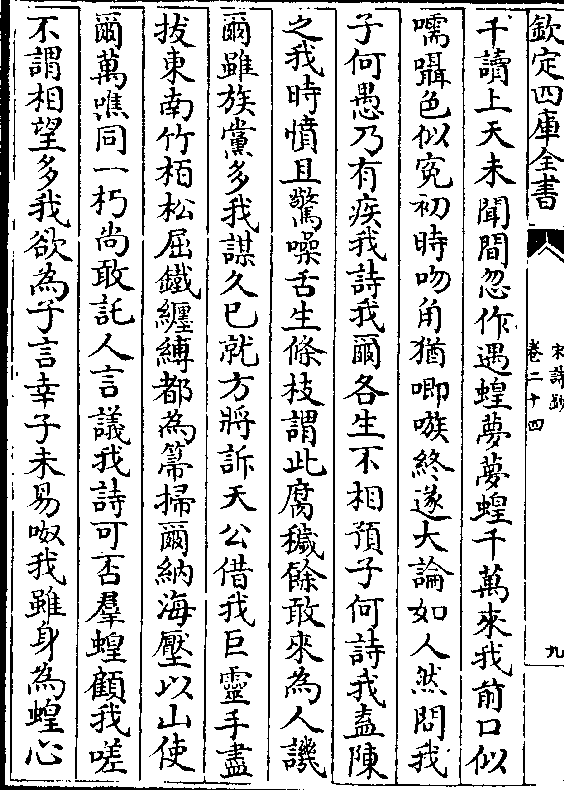 欽定四庫全書
宋詩鈔
卷二十四
九
千讀上天未聞間忽作遇蝗夢夢蝗千萬來我前口似
嚅囁色似冤初時吻角猶唧嗾終遂大論如人然問我
子何愚乃有疾我詩我爾各生不相預子何詩我盍陳
之我時憤且驚噪舌生條枝謂此腐穢餘敢來為人譏
爾雖族黨多我謀久已就方將訴天公借我巨靈手盡
拔東南竹栢松屈鐵纏縛都為箒掃爾納海壓以山使
爾萬噍同一朽尚敢託人言議我詩可否羣蝗顧我嗟
不謂相望多我欲為子言幸子未易呶我雖身為蝗心